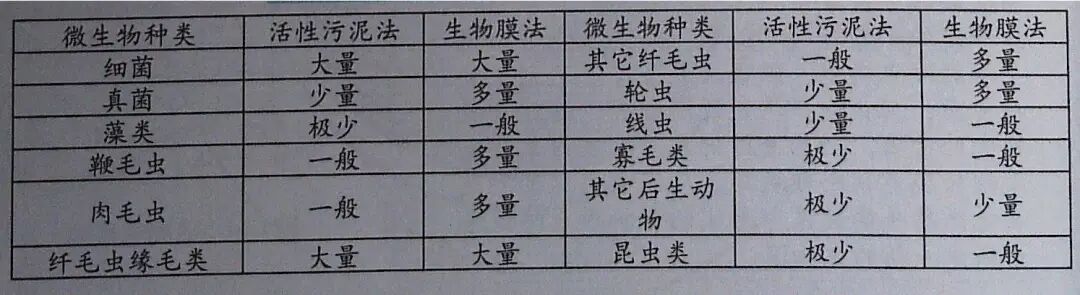 微生物种类 活性污泥法 生物膜法 微生物种类 活性污泥法 生物膜法
细菌 大量 大量 其它纤毛虫 一般 多量
真菌 少量 多量 轮虫 少量 多量
藻类 极少 一般 线虫 少量 一般
鞭毛虫 一般 多量 寡毛类 极少 一般
肉毛虫 一般 多量 其它后生动
物 极少 少量
纤毛虫缘毛类 大量 大量 昆虫类 极少 一般